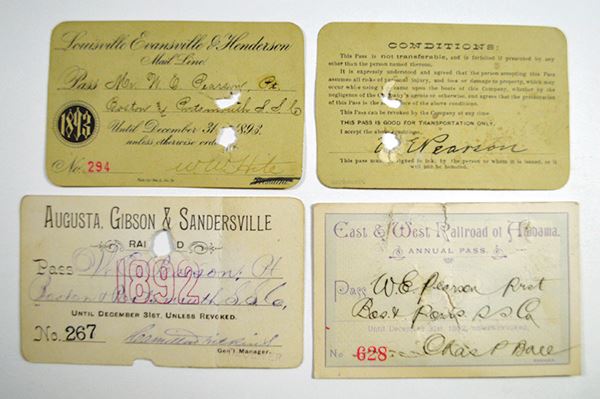 Louisville Evansville & Henderson
Mail Line.
Pass Mr. W. E. Pearson, Pt
Boston & Portsmouth S. S. Co
1893
Until December 31st 1893.
unless otherwise
No. 294
President
CONDITIONS:
This Pass is not transferable, and is forfeited if presented by any
other than the person named thereon.
It is expressly understood and agreed that the person accepting this Pass
assumes all risks of personal injury, and loss or damage to property, which may
occur while using the same upon the boats of this Company, whether by the
negligence of the Company's agents or otherwise, and agrees that the presentation
of this Pass is an acceptance of the above conditions.
This Pass can be revoked by the Company at any time.
THIS PASS IS GOOD FOR TRANSPORTATION ONLY.
I accept the above conditions.
W E Pearson
This pass must be signed in ink, by the person to whom it is issued, or it
will not be honored.
AUGUSTA, GIBSON & SANDERSVILLE
Pass W. E. Pearson, Pt
1892
Boston & Portsmouth S. S. Co,
UNTIL DECEMBER 31ST. UNLESS REVOKED.
No. 267
Gen'l Manager.
East & West Railroad of Alabama.
ANNUAL PASS.
Pass W. E. Pearson Prst
Bos & Ports S S Co
Until December 31st, 1892,
No 628
Chas P Ball